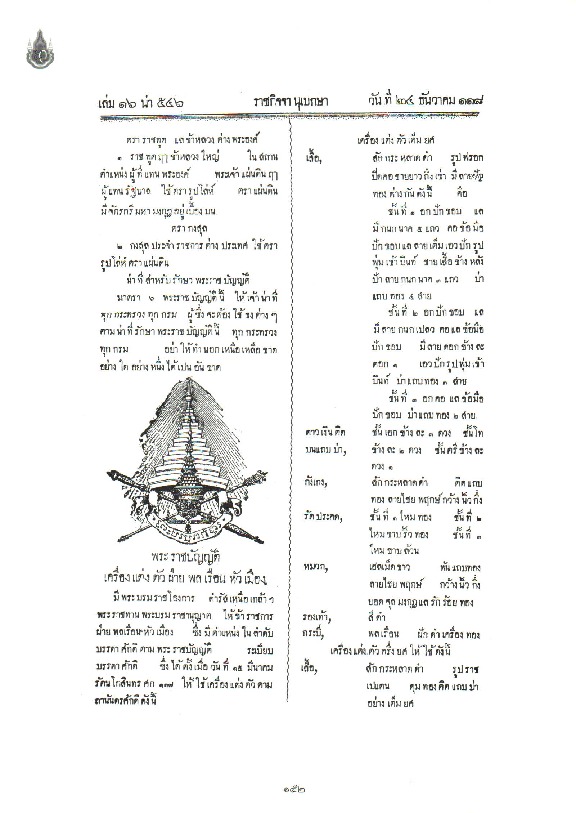 เล่ม ๑๖ น่า ๕๔๖
ราชกิจจานุเบกษา
วัน ที่ ๒๔ ธันวาคม ๑๑๘
ตรา ราชทูต แล ข้าหลวง ต่าง พระองค์
๑ ราช ทูต ฤๅ ข้าหลวง ใหญ่ ใน สถาน
ตำแหน่ง ผู้ ที่ แทน พระองค์ พระเจ้า แผ่นดิน ฤๅ
ผู้ แทน รัฐบาล ใช้ ตรา รูป โล่ห์ ตรา แผ่นดิน
มี จักรกรี มหา มงกุฎ อยู่ เบื้อง บน
ตรา กงสุล
๒ กงสุล ประจำ ราชการ ต่าง ประเทศ ใช้ ตรา
รูป โล่ห์ ตรา แผ่นดิน
น่า ที่ สำหรับ รักษา พระราช บัญญัติ
มาตรา ๖ พระราช บัญญัติ นี้ ให้ เจ้า น่า ที่
ทุก กระทรวง ทุก กรม ผู้ ซึ่ง จะ ต้อง ใช้ ธง ต่าง ๆ
ตาม น่า ที่ รักษา พระราช บัญญัติ นี้ ทุก กระทรวง
ทุก กรม อย่า ให้ ทำ นอก เหนือ เหลือ ขาด
อย่าง ใด อย่าง หนึ่ง ได้ เปน อัน ขาด
พระ ราชบัญญัติ
เครื่อง แต่ง ตัว ฝ่าย พล เรือน หัว เมือง
มี พระ บรม ราช โองการ ดำรัส เหนือ เกล้า ฯ
พระราชทาน พระบรม ราชานุญาต ให้ ข้า ราชการ
ฝ่าย พลเรือน หัว เมือง ซึ่ง มี ตำแหน่ง ใน ลำดับ
บรรดา ศักดิ์ ตาม พระราช บัญญัติ ระเบียบ
บรรดา ศักดิ์ ซึ่ง ได้ ตั้ง เมื่อ วัน ที่ ๑๕ มีนาคม
รัตน โกสินทร ศก ๑๑๗ ให้ ใช้ เครื่อง แต่ง ตัว ตาม
ถานันดร ศักดิ์ ดังนี้
เครื่อง แต่ง ตัว เต็ม ยศ
เสื้อ, สัก กระ หลาด ดำ รูป ฟรอก
ปิด คอ ชาย ยาว ถึง เข่า มี ลาย ปัก
ทอง ต่าง กัน ดังนี้ คือ
ชั้น ที่ ๑ อก ปัก ขอบ แล
มี กนก นาค ๕ แถว คอ ข้อ มือ
ปัก ขอบ แล ลาย เต็ม เอว ปัก รูป
พุ่ม เข้า บิณท์ ชาย เสื้อ ข้าง หลัง
ปัก ลาย กนก นาค ๓ แถว บ่า
แถบ ทอง ๔ สาย
ชั้น ที่ ๒ อก ปัก ขอบ แล
มี ลาย กนก เปลว คอ แล ข้อมือ
ปัก ขอบ มี ลาย ดอก ข้าง ละ
ดอก ๑ เอว ปัก รูป พุ่ม เข้า
บิณท์ บ่า แถบ ทอง ๓ สาย
ชั้น ที่ ๓ อก คอ แล ข้อ มือ
ปัก ขอบ บ่า แถบ ทอง ๒ สาย
ดาว เงิน ติด ชั้น เอก ข้าง ละ ๓ ดวง ชั้น โท
บน แถบ บ่า, ข้าง ละ ๒ ดวง ชั้น ตรี ข้าง ละ
ดวง ๑
กังเกง, สัก กระ หลาด ดำ ติด แถบ
ทอง ลาย ไชย พฤกษ์ กว้าง นิ้ว กึ่ง
รัด ประคด, ชั้น ที่ ๑ ไหม ทอง ชั้น ที่ ๒
ไหม ขาบ ริ้ว ทอง ชั้น ที่ ๓
ไหม ขาบ ล้วน
หมวก, เฮลเม็ต ขาว พัน แถบ ทอง
ลาย ไชย พฤกษ์ กว้าง นิ้ว กึ่ง
ยอด จุล มงกุฎ แล รัก ร้อย ทอง
รองเท้า, สี ดำ
กระบี่, พล เรือน ฝัก ดำ เครื่อง ทอง
เครื่อง แต่ง ตัว ครึ่ง ยศ ให้ ใช้ ดังนี้
เสื้อ, สัก กระหลาด ดำ รูป ราช
เปแตน ดุม ทอง ติด แถบ บ่า
อย่าง เต็ม ยศ
๑๕๒